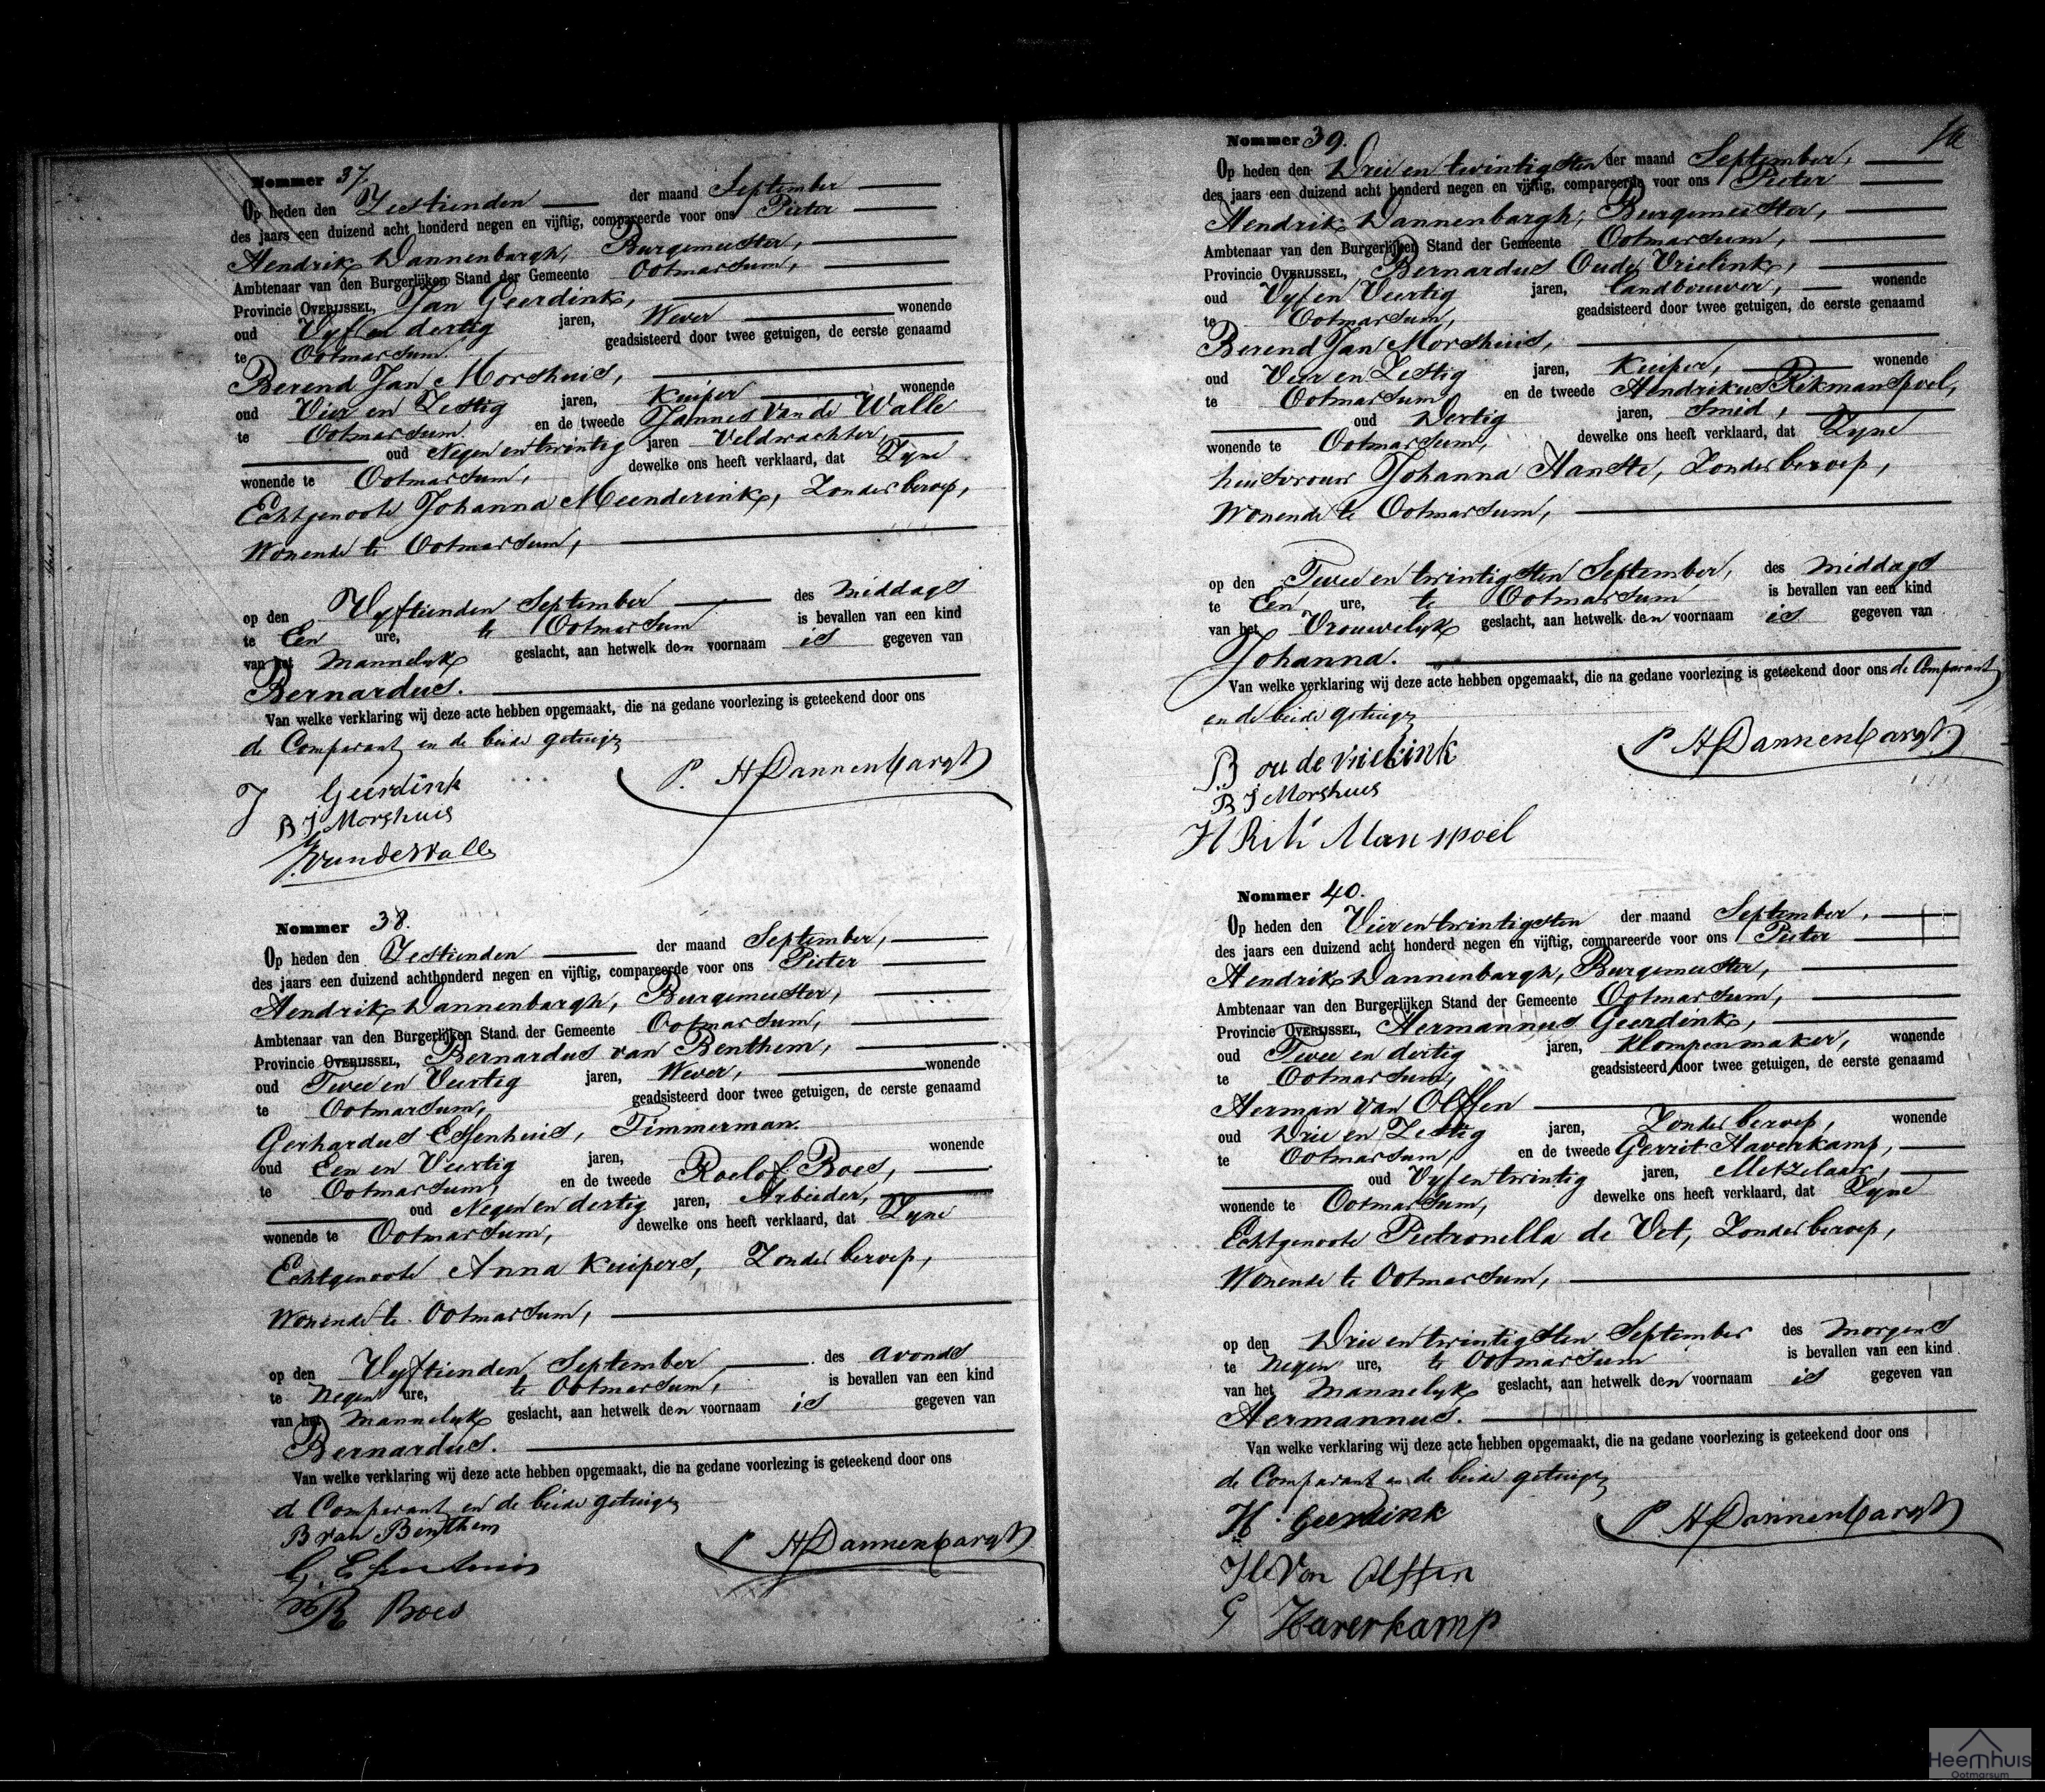 Nommer 37.
Op heden den Zestienden der maand September
des jaars een duizend acht honderd negen en vijftig, compareerde voor ons Pieter
Hendrik Dannenbargh, Burgemeester,
Ambtenaar van den Burgerlijken Stand der Gemeente Ootmarsum,
Provincie OVERIJSSEL, Jan Geerdink,
oud Vyf en dertig jaren, Wever wonende
te Ootmarsum. geadsisteerd door twee getuigen, de eerste genaamd
Berend Jan Morshuis,
oud Vier en Zestig jaren, Kuiper wonende
te Ootmarsum. en de tweede Jannes van de Walle
oud Negen en twintig jaren Veldwachter,
wonende te Ootmarsum, dewelke ons heeft verklaard, dat Zyne
Echtgenoote Johanna Meenderink, Zonder beroep,
Wonende te Ootmarsum,
op den Vyftienden September des Middags
te Een ure, te Ootmarsum is bevallen van een kind
van het Mannelyk geslacht, aan hetwelk den voornaam is gegeven van
Bernardus.
Van welke verklaring wij deze acte hebben opgemaakt, die na gedane voorlezing is geteekend door ons
de Comparant en de beide getuigen
J Geerdink P. H Dannenbargh
B J Morshuis
J. vandeWalle
Nommer 38.
Op heden den Zestienden der maand September,
des jaars een duizend achthonderd negen en vijftig, compareerde voor ons Pieter
Hendrik Dannenbargh, Burgemeester,
Ambtenaar van den Burgerlijken Stand der Gemeente Ootmarsum,
Provincie OVERIJSSEL, Bernardus van Benthem,
oud Twee en Veertig jaren, Wever, wonende
te Ootmarsum, geadsisteerd door twee getuigen, de eerste genaamd
Gerhardus Essenhuis, Timmerman.
oud Een en Veertig jaren, wonende
te Ootmarsum, en de tweede Roelof Roes,
oud Negen en dertig jaren, Arbeider,
wonende te Ootmarsum, dewelke ons heeft verklaard, dat Zyne
Echtgenoote Anna Kuipers, Zonder beroep,
Wonende te Ootmarsum,
op den Vyftienden September des avonds
te Negen ure, te Ootmarsum, is bevallen van een kind
van het Mannelyk geslacht, aan hetwelk den voornaam is gegeven van
Bernardus.
Van welke verklaring wij deze acte hebben opgemaakt, die na gedane voorlezing is geteekend door ons
de Comparant en de beide getuigen
B van Benthem
P H Dannenbargh
G. Essenhuis
R Roes
Nommer 39.
Op heden den Drie en twintigsten der maand September,
des jaars een duizend acht honderd negen en vijftig, compareerde voor ons Pieter
Hendrik Dannenbargh, Burgemeester,
Ambtenaar van den Burgerlijken Stand der Gemeente Ootmarsum,
Provincie OVERIJSSEL, Bernardus Oude Vrielink,
oud Vyf en Veertig jaren, landbouwer, wonende
te Ootmarsum, geadsisteerd door twee getuigen, de eerste genaamd
Berend Jan Morshuis,
oud Vier en Zestig jaren, Kuiper, wonende
te Ootmarsum, en de tweede Hendrikus Rikmanspoel,
oud Dertig jaren, Smid,
wonende te Ootmarsum, dewelke ons heeft verklaard, dat Zyne
huisvrouw Johanna Hanste, Zonder beroep,
Wonende te Ootmarsum,
op den Twee en twintigsten September, des Middags
te Een ure, te Ootmarsum is bevallen van een kind
van het Vrouwelyk geslacht, aan hetwelk den voornaam is gegeven van
Johanna.
Van welke verklaring wij deze acte hebben opgemaakt, die na gedane voorlezing is geteekend door ons de Comparant
en de beide getuigen
P H Dannenbargh
B oude vrielink
B J Morshuis
H Rik Manspoel
Nommer 40.
Op heden den Vier en twintigsten der maand September,
des jaars een duizend acht honderd negen en vijftig, compareerde voor ons Pieter
Hendrik Dannenbargh, Burgemeester,
Ambtenaar van den Burgerlijken Stand der Gemeente Ootmarsum,
Provincie OVERIJSSEL, Hermannus Geerdink,
oud Twee en dertig jaren, Klompenmaker, wonende
te Ootmarsum, geadsisteerd door twee getuigen, de eerste genaamd
Herman van Olffen
oud Drie en Zestig jaren, Zonder beroep, wonende
te Ootmarsum, en de tweede Gerrit Haverkamp,
oud Vyf en twintig jaren, Metzelaar,
wonende te Ootmarsum, dewelke ons heeft verklaard, dat Zyne
Echtgenoote Pietronella de Vet, Zonder beroep,
Wonende te Ootmarsum,
op den Drie en twintigsten September des morgens
te Negen ure, te Ootmarsum is bevallen van een kind
van het Mannelyk geslacht, aan hetwelk den voornaam is gegeven van
Hermannus.
Van welke verklaring wij deze acte hebben opgemaakt, die na gedane voorlezing is geteekend door ons
de Comparant en de beide getuigen
H Geerdink P H Dannenbargh
H Von Olffen
G Haverkamp
Heemhuis
Ootmarsum